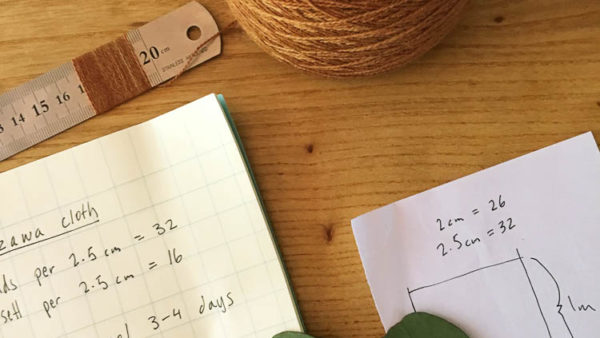 20 cm
14 15 16
STAINLESS
zawa cloth
ds per 2.5 cm = 32
sett per 2.5 cm = 16
3-4 days
2cm = 26
2.5cm = 32
1m